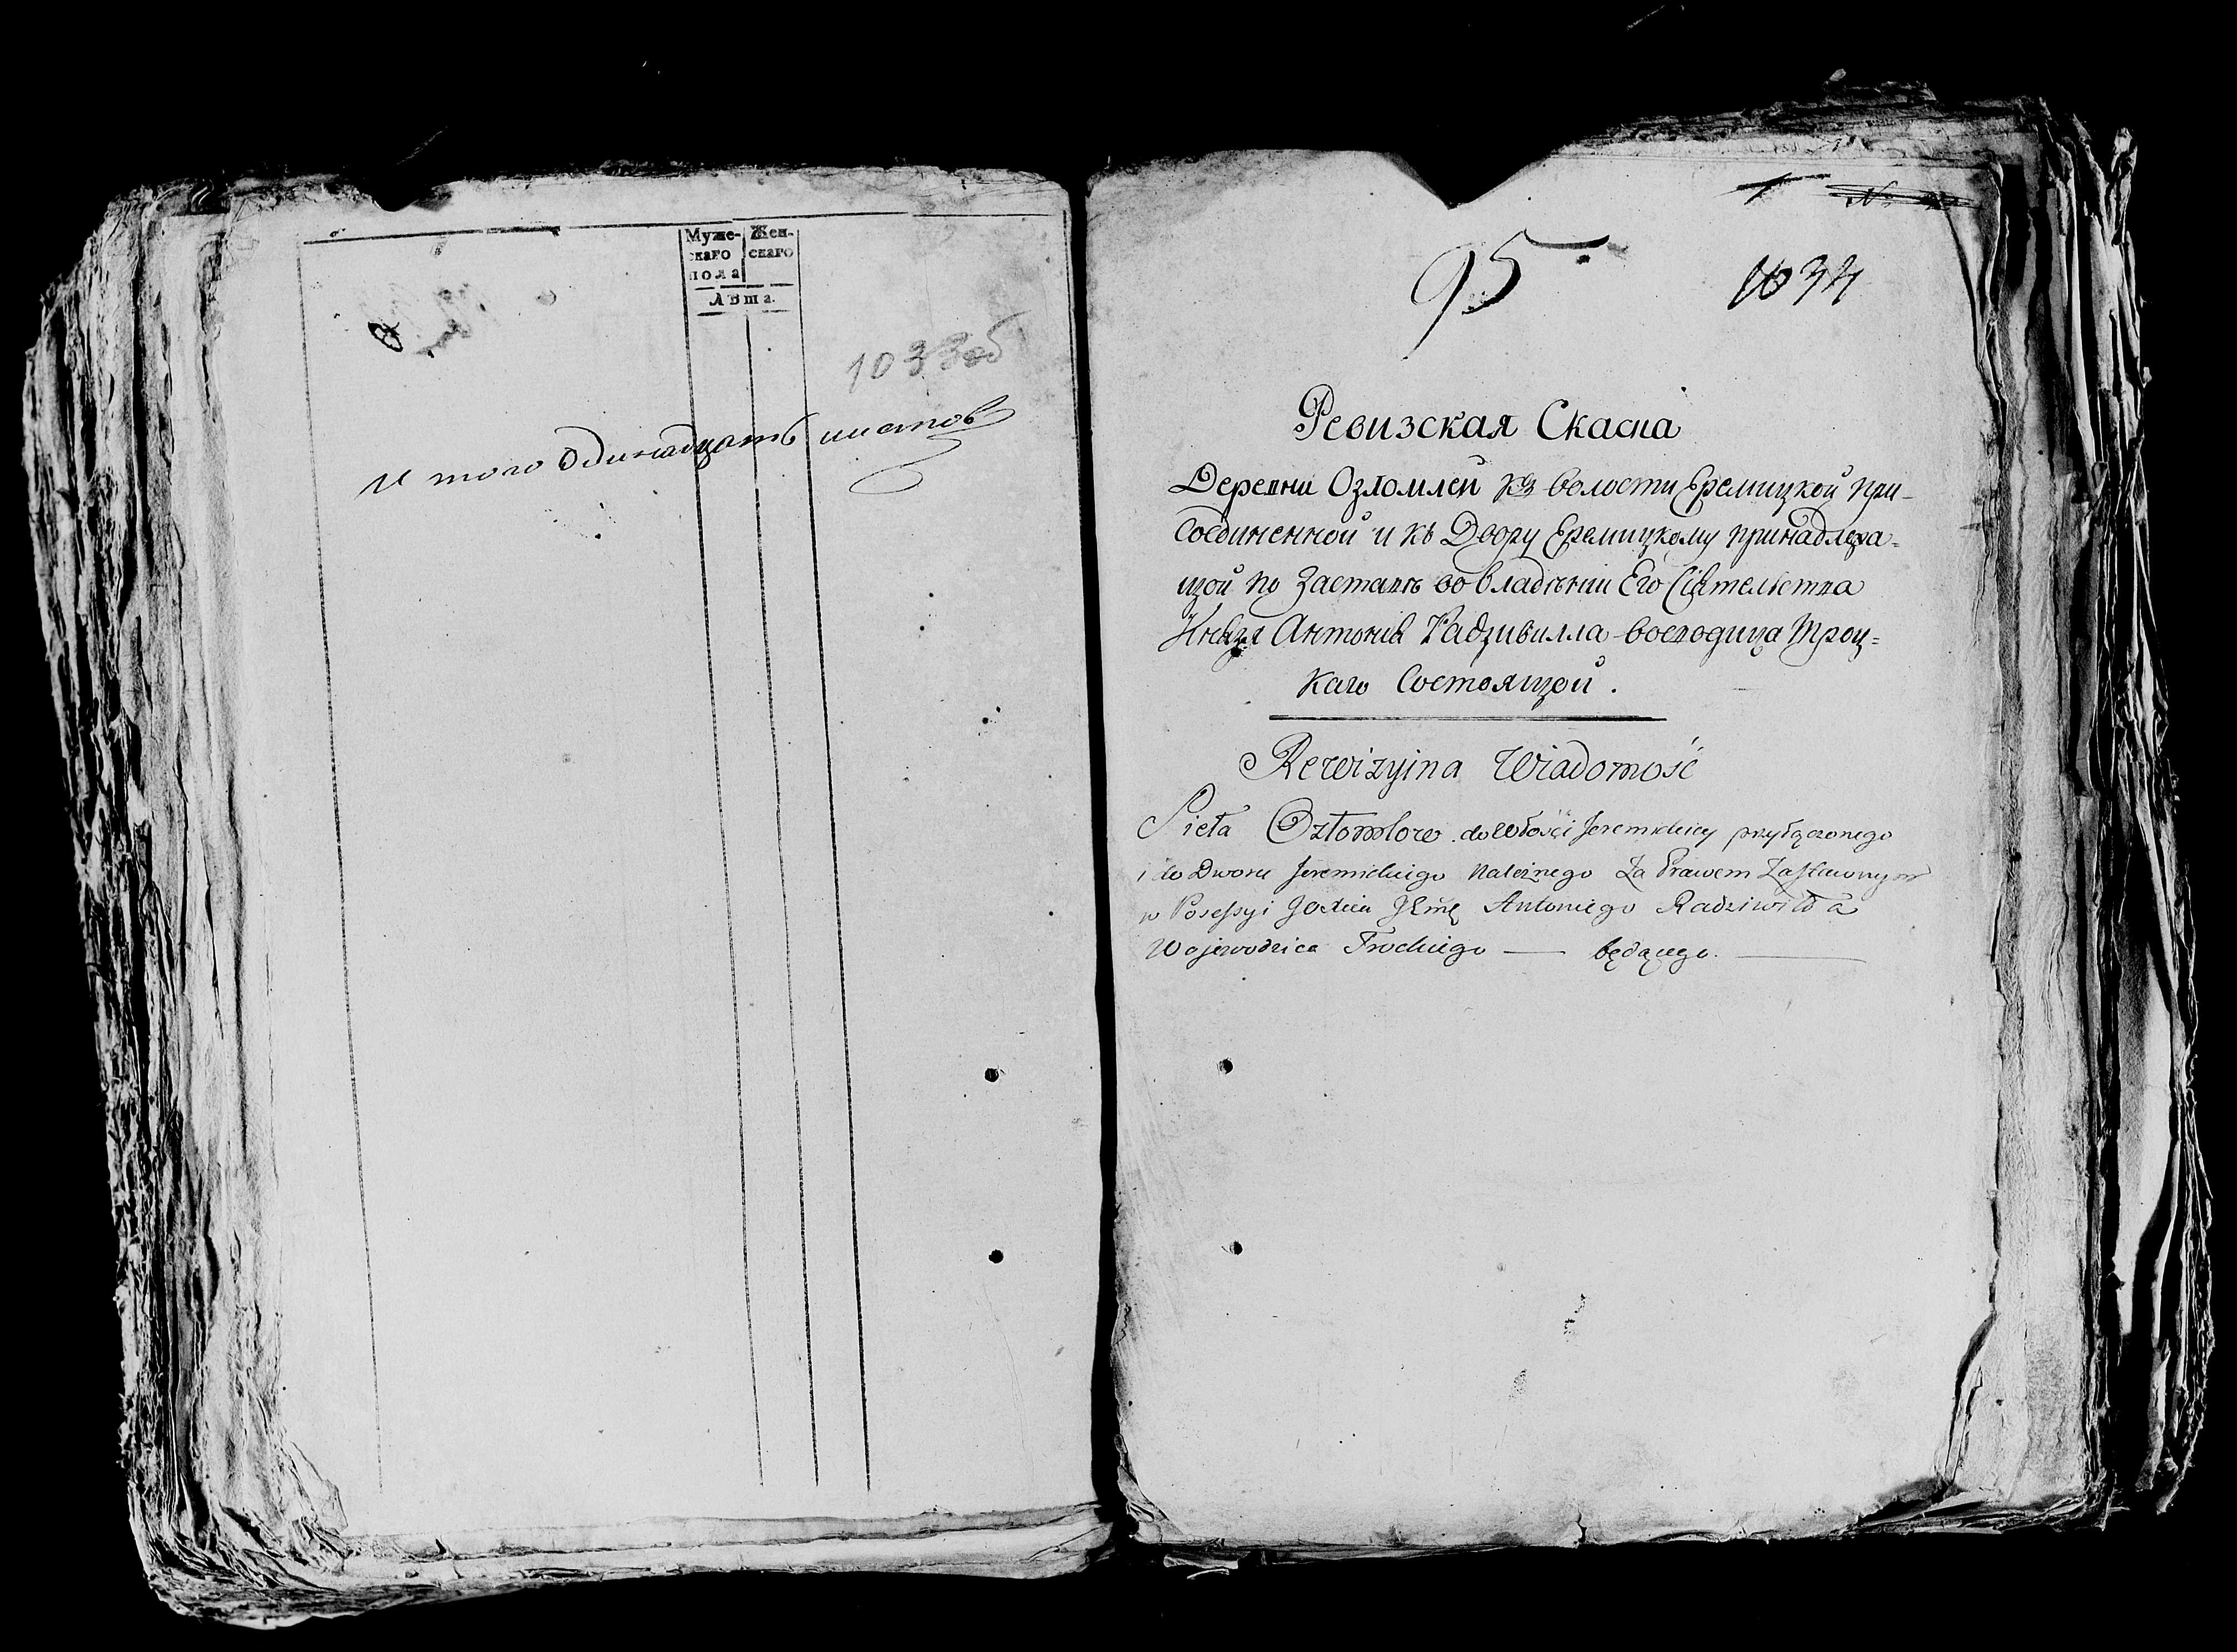 Муже- Жен-
скаго скаго
пола
Лѣта.
1033об
И того Одинадцать листов
95
1034
Ревизская Скаска
Деревни Озломлеи къ волости Еремицкой при-
Соединенной и къ Двору Еремицкому принадлежа-
щой по Заставѣ во Владѣнии Его Сіятельства
Князя Антонія Радзивилла воеводича Троц=
каго Состоящой.
Rewizyina Wiadomość
Sioła Ozłomlow do Włości Jeremickiey przyłączonego
i do Dworu Jeremickiego Należnego Za Prawem Zastawnym
w Possessyi Antoniego Radziwiłła
Wojewodzica Trockiego — będącego.